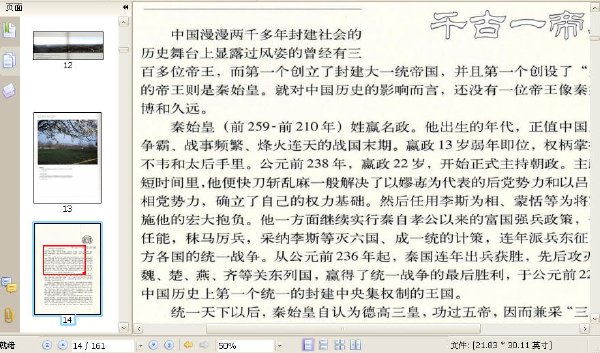 页面
12
13
14
千古一帝
中国漫漫两千多年封建社会的
历史舞台上显露过风姿的曾经有三
百多位帝王，而第一个创立了封建大一统帝国，并且第一个创设了“
的帝王则是秦始皇。就对中国历史的影响而言，还没有一位帝王像秦
博和久远。
秦始皇（前259-前210年）姓嬴名政。他出生的年代，正值中国
争霸、战事频繁、烽火连天的战国末期。嬴政13岁弱年即位，权柄掌
不韦和太后手里。公元前238年，嬴政22岁，开始正式主持朝政。主
短时间里，他便快刀斩乱麻一般解决了以嫪毐为代表的后党势力和以吕
相党势力，确立了自己的权力基础。然后任用李斯为相、蒙恬等为将
施他的宏大抱负。他一方面继续实行秦自孝公以来的富国强兵政策，
任能，秣马厉兵，采纳李斯等灭六国、成一统的计策，连年派兵东征
方各国的统一战争。从公元前236年起，秦国连年出兵获胜，先后攻灭
魏、楚、燕、齐等关东列国，赢得了统一战争的最后胜利，于公元前22
中国历史上第一个统一的封建中央集权制的王国。
统一天下以后，秦始皇自认为德高三皇，功过五帝，因而兼采“三
就绪
14 / 161
50%
文件: [21.83 * 30.11 英寸]